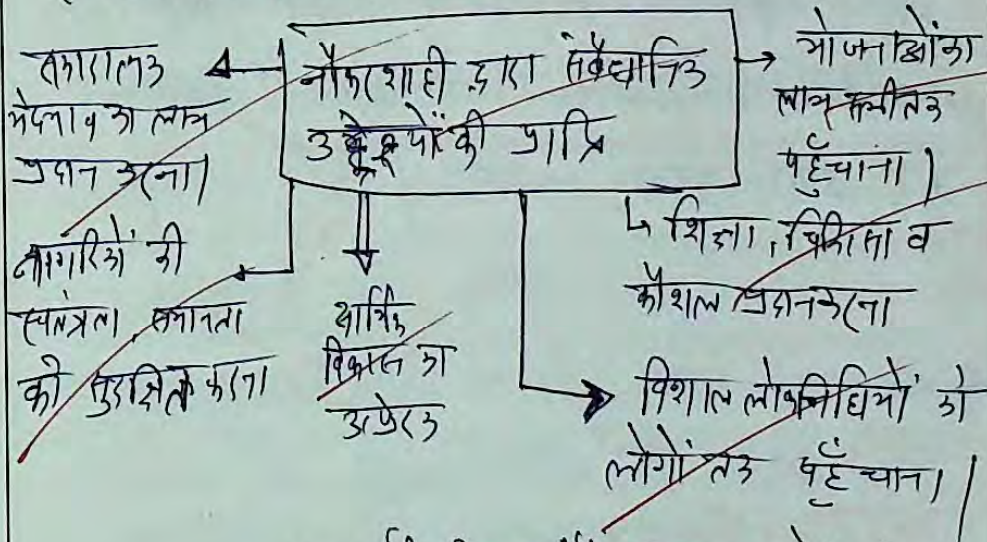 नौकरशाही द्वारा संवैधानिक
उद्देश्यों की प्राप्ति
सकारात्मक
भेदभाव का लाभ
प्रदान करना।
नागरिकों की
स्वतंत्रता, समानता
को सुरक्षित करना
आर्थिक
विकास का
उत्प्रेरक
योजनाओं का
लाभ सभी तक
पहुँचाना।
शिक्षा, चिकित्सा व
कौशल प्रदान करना
विशाल लोकनिधियों को
लोगों तक पहुँचाना।